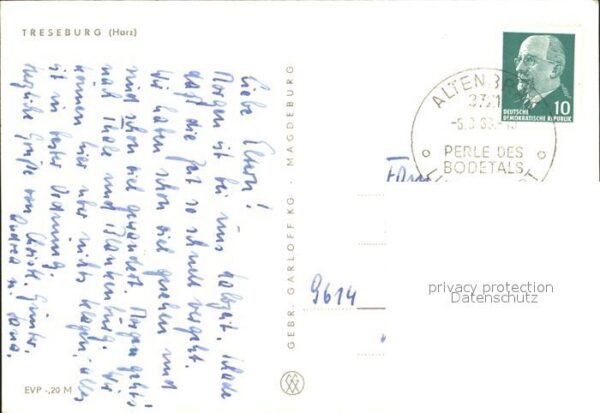 TRESEBURG (Harz)
Liebe Eltern!
Morgen ist bei uns Halbzeit. Schade
daß die Zeit so schnell vergeht.
Wir haben schon viel gesehen und
sind schon viel gewandert. Morgen geht's
nach Thale und Blankenburg. Wir
können hier über nichts klagen, alles
ist in bester Ordnung.
Herzliche Grüße von Christl, Günter,
Andrea u. Jana.
EVP -,20 M
GEBR. GARLOFF KG · MAGDEBURG
10
DEUTSCHE
DEMOKRATISCHE REPUBLIK
ALTENBR
3721
PERLE DES
BODETALS
Fam
9614
privacy protection
Datenschutz